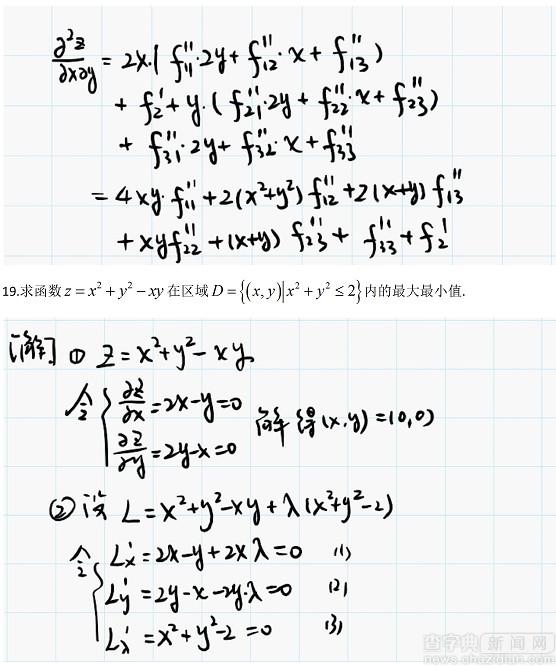 ∂²z/∂x∂y = 2x·( f₁₁''·2y + f₁₂''·x + f₁₃'' )
+ f₂' + y·( f₂₁''·2y + f₂₂''·x + f₂₃'' )
+ f₃₁''·2y + f₃₂''·x + f₃₃''
= 4xy·f₁₁'' + 2(x²+y²) f₁₂'' + 2(x+y) f₁₃''
+ xy f₂₂'' + (x+y) f₂₃'' + f₃₃'' + f₂'
19.求函数 z = x² + y² − xy 在区域 D = {(x, y)|x² + y² ≤ 2} 内的最大最小值.
[解] ① Z = x²+y²−xy
令 { ∂z/∂x = 2x−y = 0
∂z/∂y = 2y−x = 0 解得 (x,y) = (0,0)
② 设 L = x²+y²−xy+λ(x²+y²−2)
令 { Lx' = 2x−y+2xλ = 0 (1)
Ly' = 2y−x−2y·λ = 0 (2)
Lλ' = x²+y²−2 = 0 (3)
查字典 新闻网
news.chazidian.com